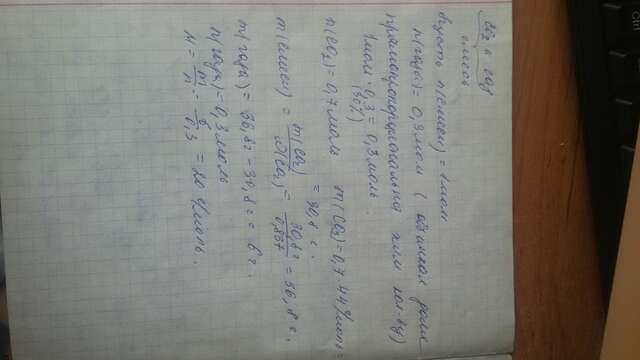 Ctrl
CO₂ и газ
смесь
Пусть n(смеси) = 1 моль
n(газа) = 0,3 моль ( объемная доля
прямопропорциональна хим кол-ву)
1 моль · 0,3 = 0,3 моль.
(30%)
n(CO₂) = 0,7 моль m(CO₂) = 0,7 · 44 г/моль =
= 30,8 г.
m(смеси) = m(CO₂)/ω(CO₂) = 30,8 г/0,837 = 36,8 г.
m(газа) = 36,8 г – 30,8 г = 6 г.
n(газа) = 0,3 моль
M = m/n = 6/0,3 = 20 г/моль.